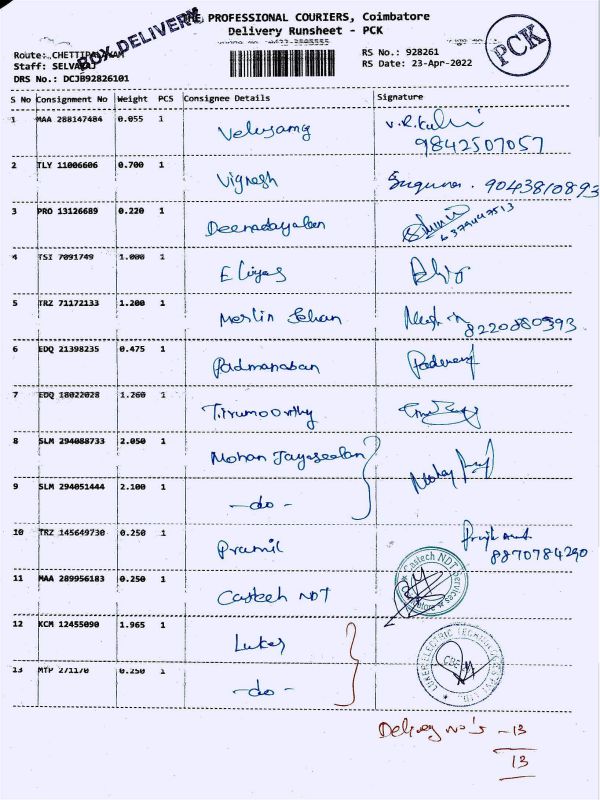 THE PROFESSIONAL COURIERS, Coimbatore
BOX DELIVERY
Delivery Runsheet - PCK
PCK
Route: CHETTIPALAYAM
RS No.: 928261
Staff: SELVARAJ
RS Date: 23-Apr-2022
DRS No.: DCJB92826101
S No Consignment No Weight PCS Consignee Details Signature
1 MAA 288147484 0.055 1 Velusamy
9842507057
2 TLY 11006606 0.700 1 Vignesh Suguna. 9043810893
3 PRO 13126689 0.220 1 Deenadayalan
6379447513
4 TSI 7091749 1.000 1 Eliyas
5 TRZ 71172133 1.200 1 Merlin Jehan
8220880593
6 EDQ 21398235 0.475 1 Padmanaban
7 EDQ 18022028 1.260 1 T.rumoorthy
8 SLM 294088733 2.050 1 Mohan Jayaseelan
9 SLM 294051444 2.100 1 -do-
10 TRZ 145649730 0.250 1 Pramil
8870784290
11 MAA 289956183 0.250 1 Castech NDT
Castech NDT Services
Coimbatore
12 KCM 12455090 1.965 1 Luker
LUKER ELECTRIC TECHNOLOGIES PVT LTD
CBE
13 MTP 271170 0.250 1 -do-
Delivery No's - 13
13